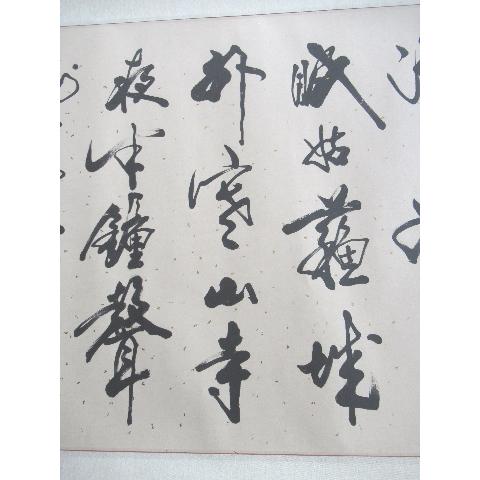 眠姑蘇城
外寒山寺
夜半鐘聲